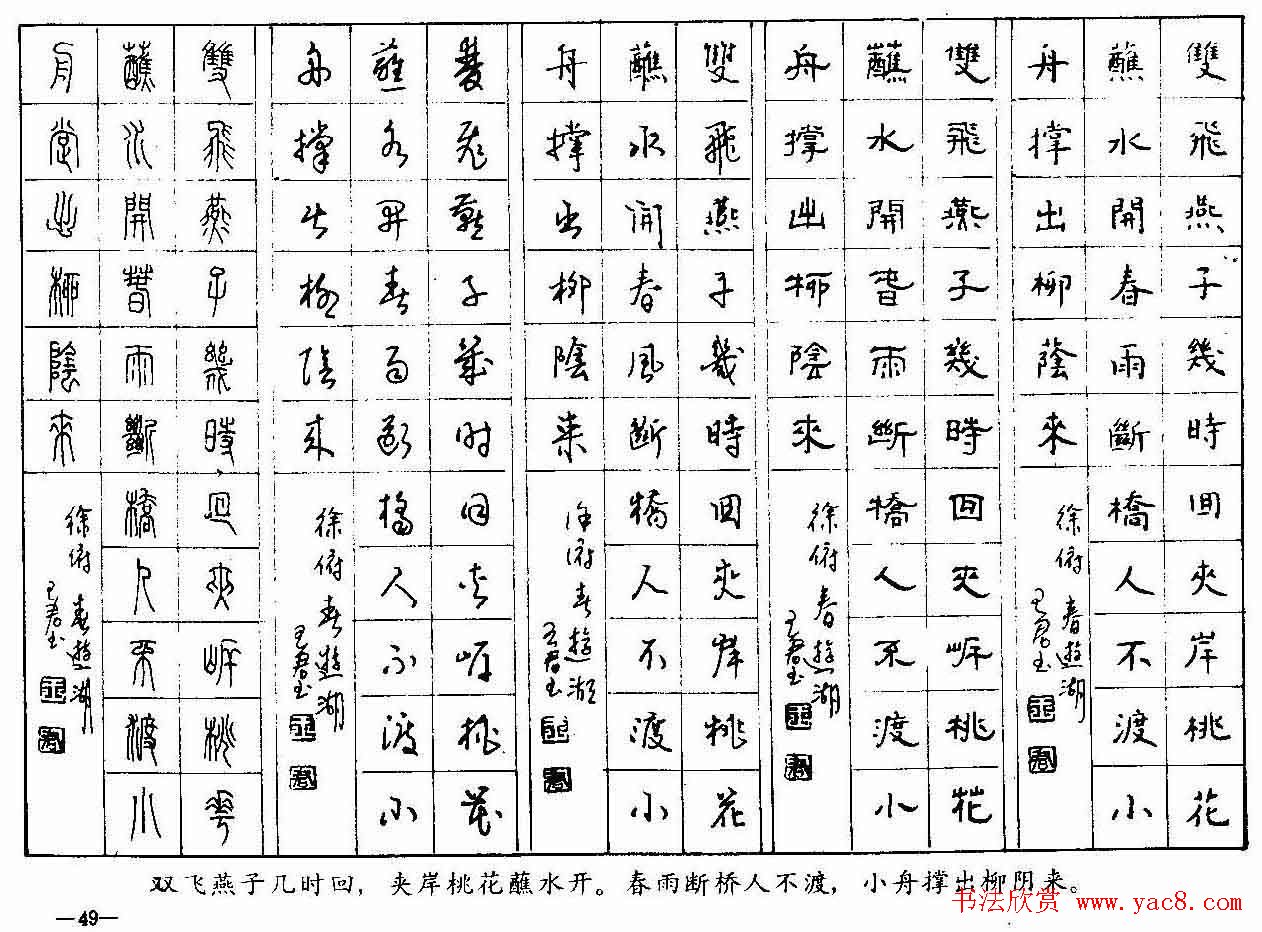 雙飛燕子幾時回夾岸桃花
蘸水開春雨斷橋人不渡小
舟撑出柳蔭來 徐俯春遊湖
雙飛燕子幾時回夾岸桃花
蘸水開春雨斷橋人不渡小
舟撑出柳陰來 徐俯春遊湖
雙飛燕子幾時回夾岸桃花
蘸水開春風斷橋人不渡小
舟撑出柳陰來 徐俯春遊湖
雙飛燕子幾時回夾岸桃花
蘸水開春雨斷橋人不渡小
舟撑出柳陰來 徐俯春遊湖
雙飛燕子幾時回夾岸桃花
蘸水開春雨斷橋人不渡小
舟撑出柳陰來 徐俯春遊湖
双飞燕子几时回，夹岸桃花蘸水开。春雨断桥人不渡，小舟撑出柳阴来。
—49—
书法欣赏 www.yac8.com